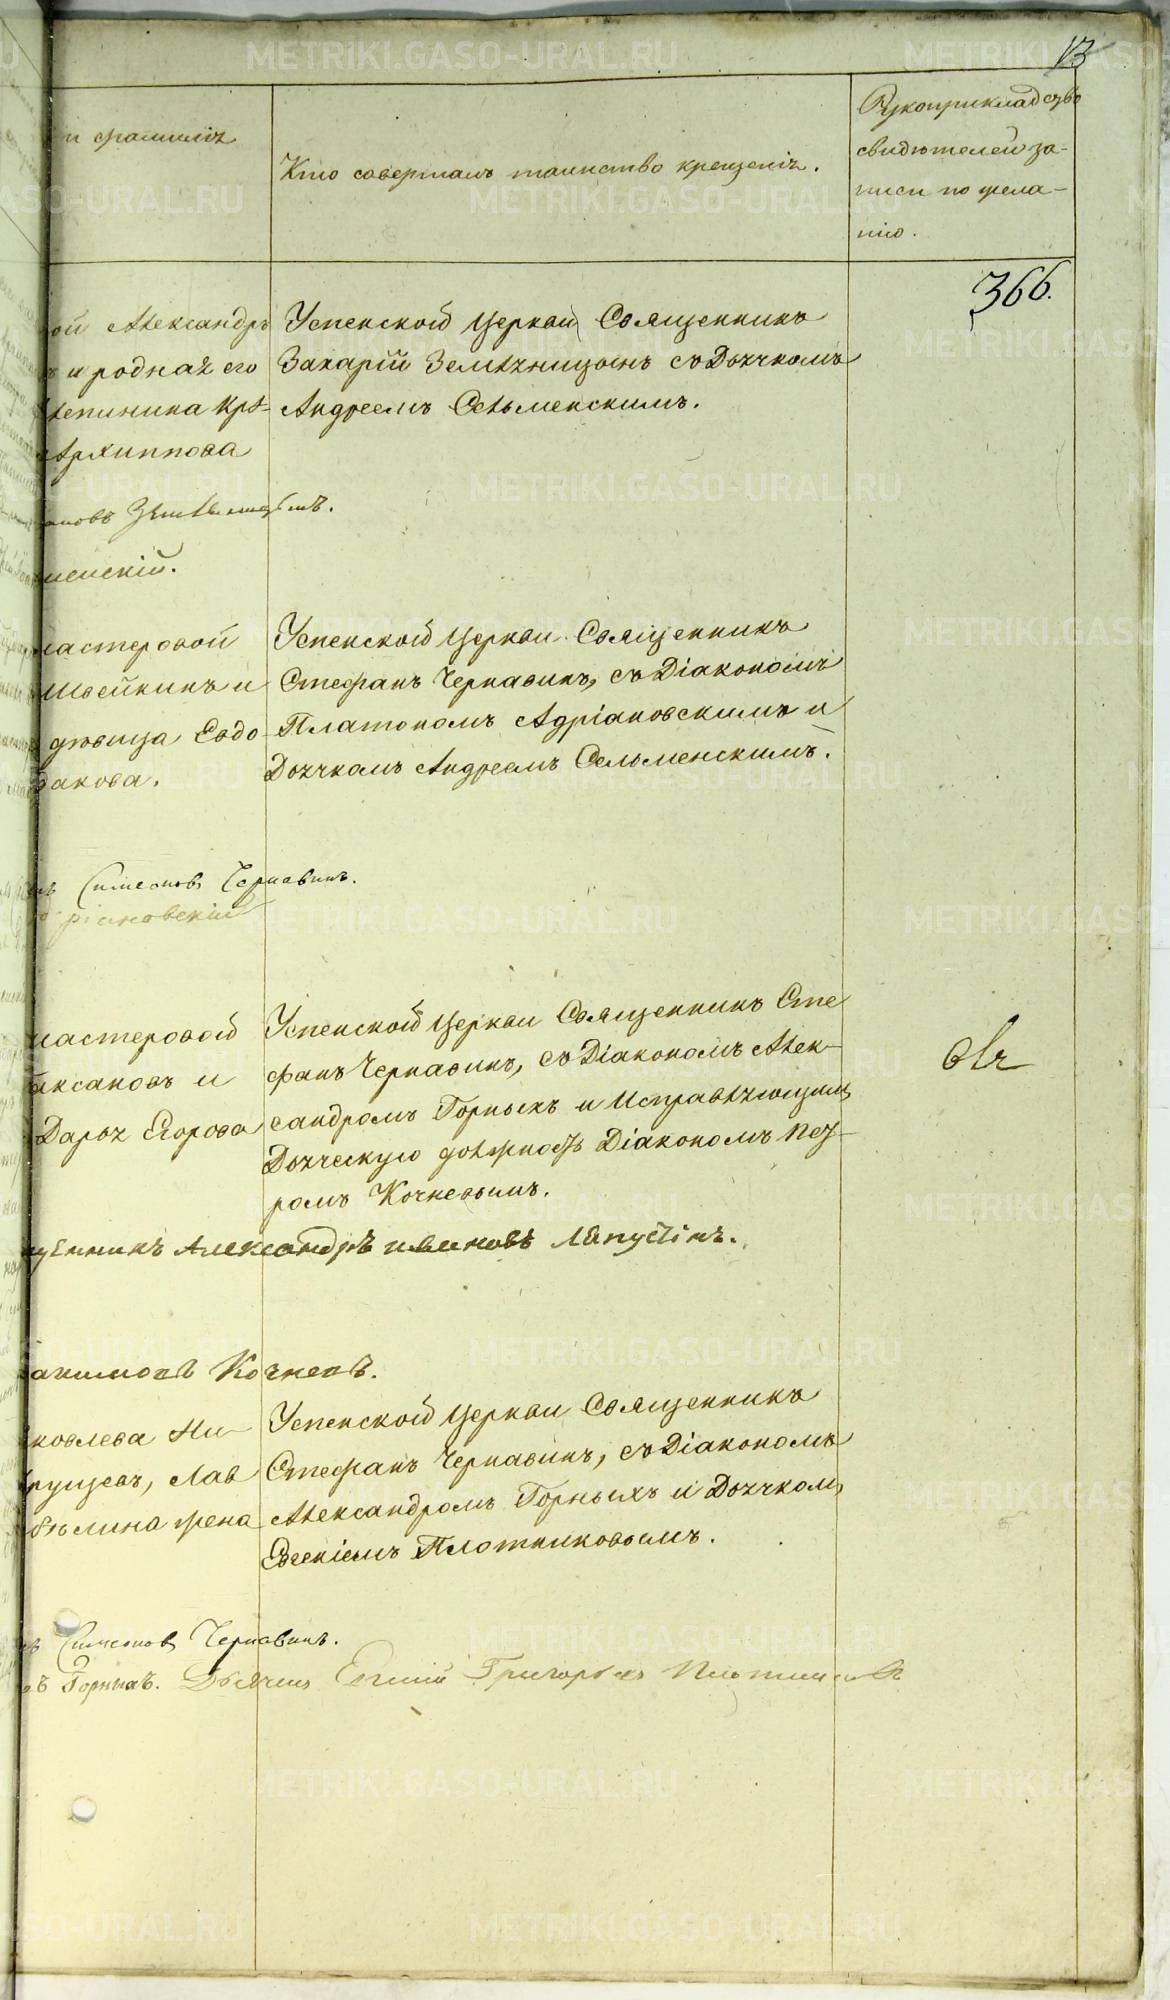 13
и фамилія
Кто совершалъ таинство крещенія.
Рукоприкладство
свидѣтелей за-
писи по жела-
нію.
366.
ой Александръ
и родная его
Архиппова
Успенской Церкви Священникъ
Захарій Земляницынъ съ Дьячкомъ
Андреемъ Сельменскимъ.
новъ Земляницынъ.
менскій.
мастеровой
Швейкинъ и
дѣвица Евдо
акова.
Успенской Церкви Священникъ
Стефанъ Чернавинъ, съ Діакономъ
Платономъ Адріановскимъ и
Дьячкомъ Андреемъ Сельменскимъ.
Симеоновъ Чернавинъ.
ріановскій
мастеровой
аксановъ и
Дарья Егорова
Успенской Церкви Священникъ Сте
фанъ Чернавинъ, съ Діакономъ Алек-
сандромъ Горныхъ и Исправляющимъ
Дьяческую должность Діакономъ Пет-
ромъ Кочневымъ.
щенникъ Александръ Ивановъ Лапустинъ.
акимовъ Кочневъ.
ковлева Ни-
рущевъ, Лав
бѣлина жена
Успенской Церкви Священникъ
Стефанъ Чернавинъ, съ Діакономъ
Александромъ Горныхъ и Дьячкомъ
Евгеніемъ Плотниковымъ.
Симеоновъ Чернавинъ.
Горныхъ. Дьячекъ Евгеній Григорьевъ Плотниковъ
METRIKI.GASO-URAL.RU